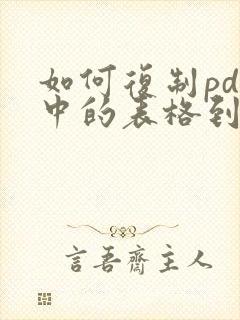 如何復制pd
中的表格到
言吾齋主人